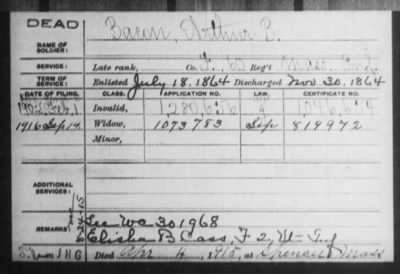 DEAD
NAME OF SOLDIER: Bacon, Arthur B.
SERVICE: Late rank, Co. Reg't Mass. Inf.
TERM OF SERVICE: Enlisted July 18, 1864 Discharged Nov. 30, 1864
DATE OF FILING. CLASS. APPLICATION NO. LAW. CERTIFICATE NO.
Invalid,
1916 Sep 14 Widow, 1073783 Sep 819972
Minor,
ADDITIONAL SERVICES:
See WC 301968
Elisha B Cass, F 2, Vt Inf
Died 1915, at Spencer Mass